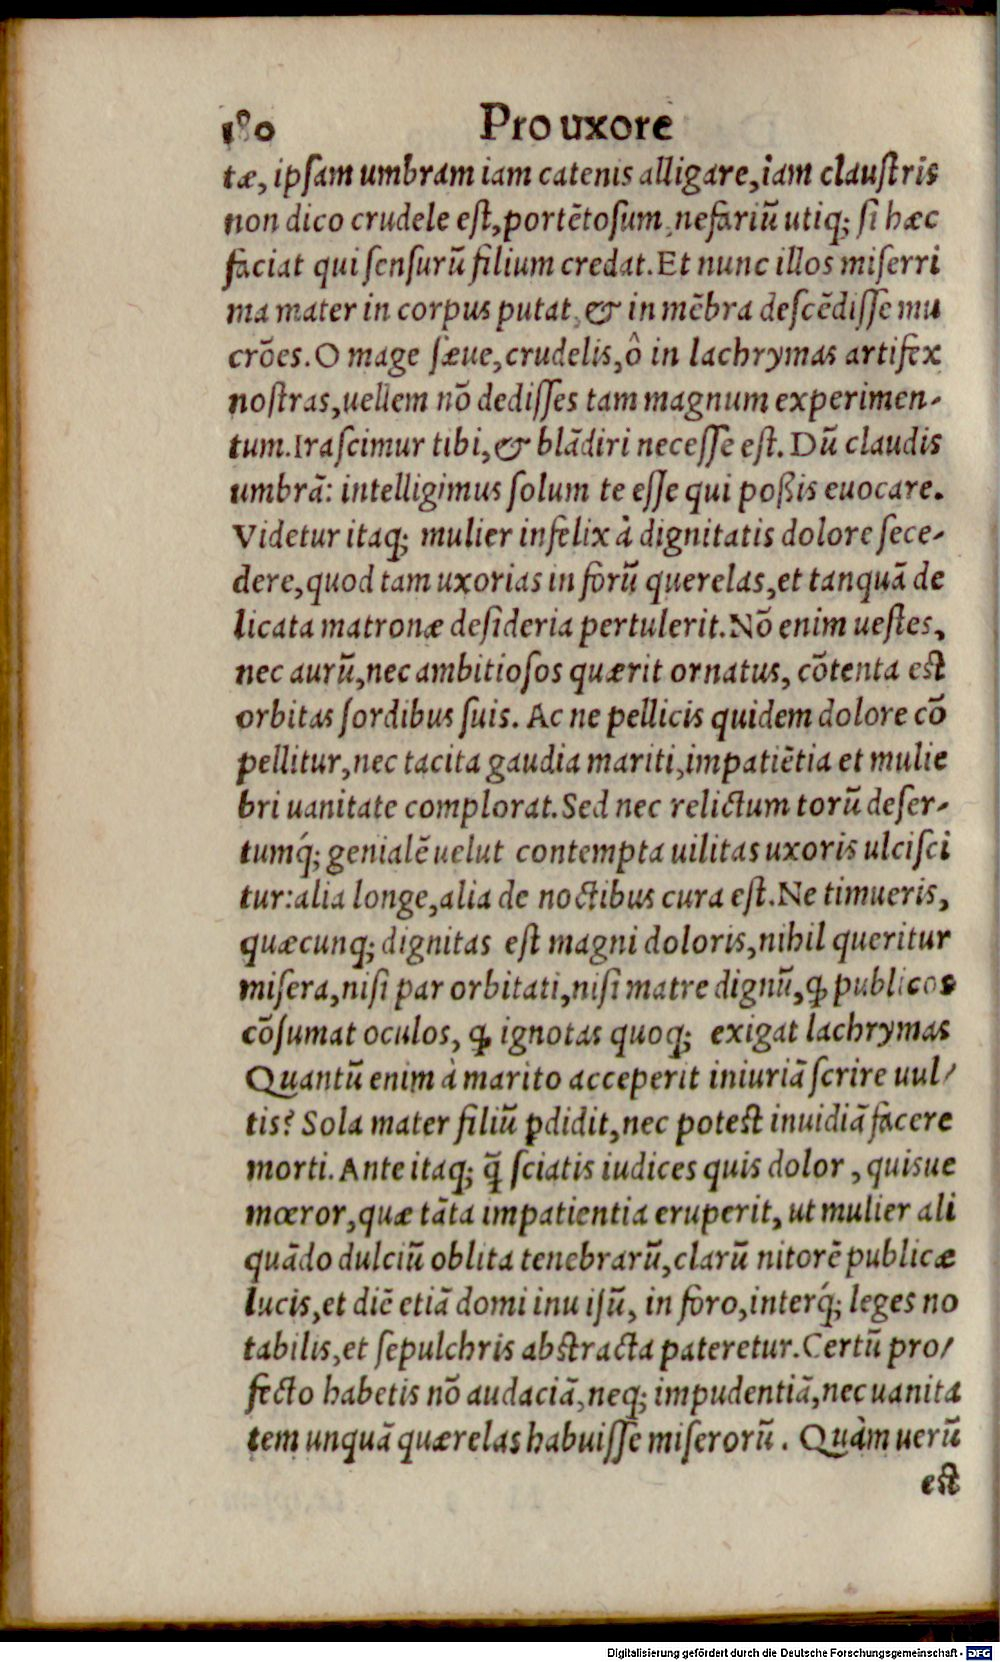 180 Pro uxore
tæ, ipsam umbram iam catenis alligare, iam claustris
non dico crudele est, portētosum, nefariū utiq; si hæc
faciat qui sensurū filium credat. Et nunc illos miserri
ma mater in corpus putat, & in mēbra descēdisse mu
crōes. O mage sæue, crudelis, ô in lachrymas artifex
nostras, uellem nō dedisses tam magnum experimen-
tum. Irascimur tibi, & blādiri necesse est. Dū claudis
umbrā: intelligimus solum te esse qui poßis euocare.
Videtur itaq; mulier infelix à dignitatis dolore sece-
dere, quod tam uxorias in forū querelas, et tanquā de
licata matronæ desideria pertulerit. Nō enim uestes,
nec aurū, nec ambitiosos quærit ornatus, cōtenta est
orbitas sordibus suis. Ac ne pellicis quidem dolore cō
pellitur, nec tacita gaudia mariti, impatiētia et mulie
bri uanitate complorat. Sed nec relictum torū deser-
tumq́; genialē uelut contempta uilitas uxoris ulcisci
tur: alia longe, alia de noctibus cura est. Ne timueris,
quæcunq; dignitas est magni doloris, nihil queritur
misera, nisi par orbitati, nisi matre dignū, ꝙ publicos
cōsumat oculos, ꝙ ignotas quoq; exigat lachrymas
Quantū enim à marito acceperit iniuriā scrire uul-
tis? Sola mater filiū ꝑdidit, nec potest inuidiā facere
morti. Ante itaq; q̄ sciatis iudices quis dolor, quisue
mœror, quæ tāta impatientia eruperit, ut mulier ali
quādo dulciū oblita tenebrarū, clarū nitorē publicæ
lucis, et diē etiā domi inuisū, in foro, interq́; leges no
tabilis, et sepulchris abstracta pateretur. Certū pro-
fecto habetis nō audaciā, neq; impudentiā, nec uanita
tem unquā quærelas habuisse miserorū. Quàm uerū
est
Digitalisierung gefördert durch die Deutsche Forschungsgemeinschaft - DFG